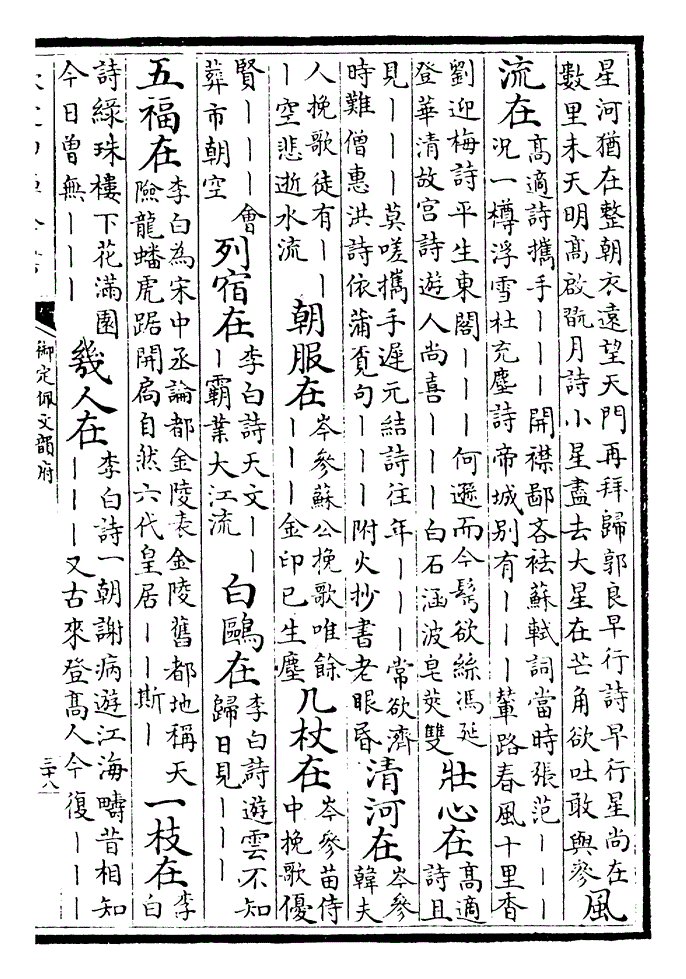 星河猶在整朝衣遠望天門再拜歸郭良早行詩早行星尚在
數里未天明高啟翫月詩小星盡去大星在芒角欲吐敢與參
風
流在
高適詩攜手丨丨丨開襟鄙吝袪蘇軾詞當時張范丨丨丨
况一樽浮雪杜充塵詩帝城别有丨丨丨輦路春風十里香
劉迎梅詩平生東閣丨丨丨何遜而今鬂欲絲馮延
登華清故宮詩遊人尚喜丨丨丨白石涵波皂莢雙
壯心在
高適
詩且
見丨丨丨莫嗟攜手遲元結詩往年丨丨丨常欲濟
時難僧惠洪詩依蒲覓句丨丨丨附火抄書老眼昏
清河在
岑參
韓夫
人挽歌徒有丨丨
丨空悲逝水流
朝服在
岑參蘇公挽歌唯餘
丨丨丨金印已生塵
几杖在
岑參苗侍
中挽歌優
賢丨丨丨會
葬市朝空
列宿在
李白詩天文丨丨
丨霸業大江流
白鷗在
李白詩遊雲不知
歸日見丨丨丨
五福在
李白為宋中丞論都金陵表金陵舊都地稱天
險龍蟠虎踞開扃自然六代皇居丨丨斯丨
一枝在
李
白
詩綠珠樓下花滿園
今日曽無丨丨丨
幾人在
李白詩一朝謝病遊江海疇昔相知
丨丨丨又古來登髙人今復丨丨丨
御定佩文韻府
三十八